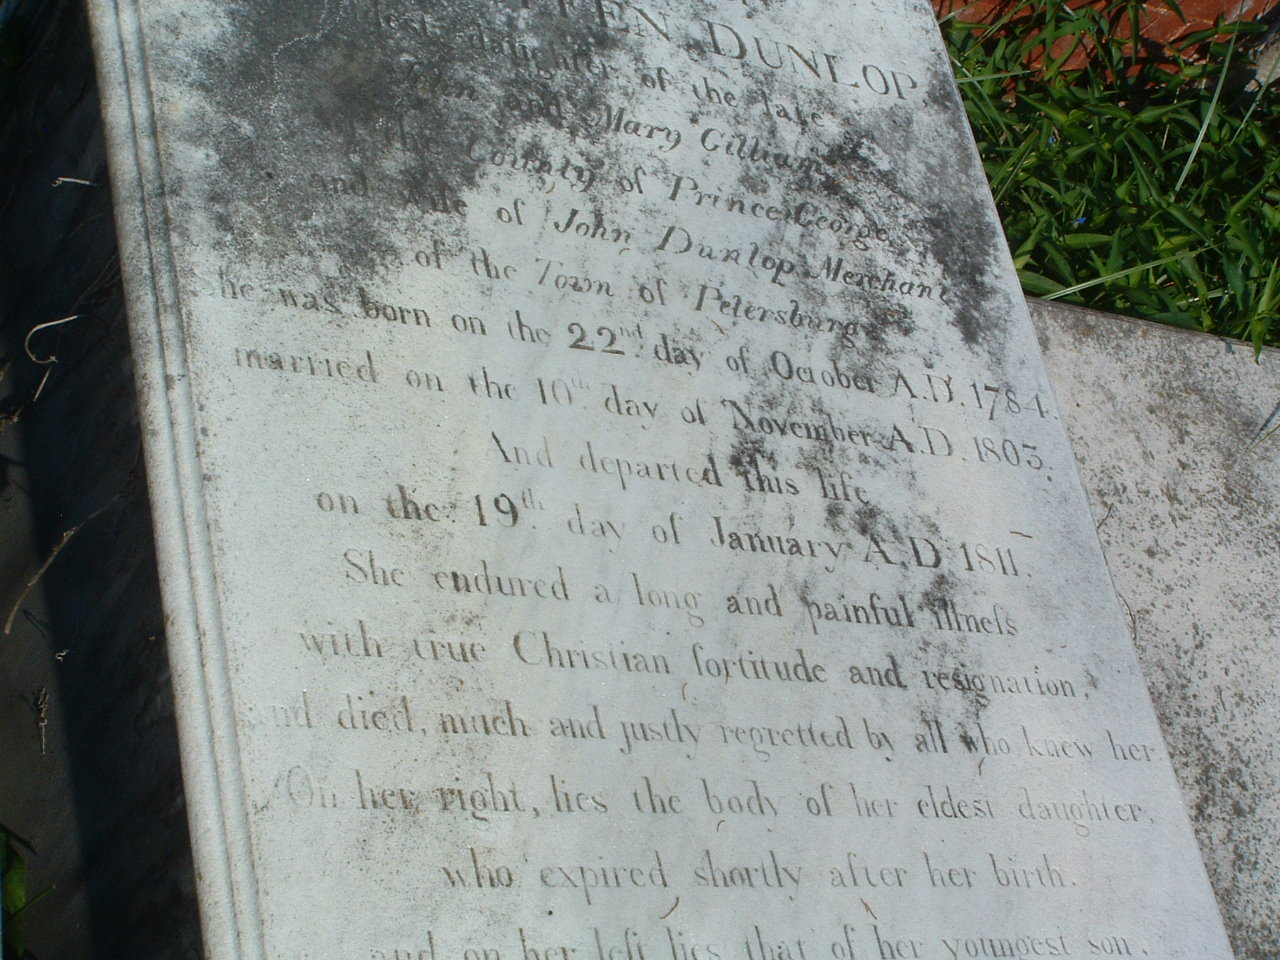 DUNLOP
daughter of the late
John and Mary Gilliam
of the County of Prince George
and wife of John Dunlop Merchant
of the Town of Petersburg
She was born on the 22nd day of October A.D. 1784.
married on the 10th day of November A.D. 1803.
And departed this life
on the 19th day of January A.D 1811.
She endured a long and painful illneſs
with true Christian fortitude and resignation,
and died, much and justly regretted by all who knew her
On her right, lies the body of her eldest daughter,
who expired shortly after her birth.
and on her left lies that of her youngest son,